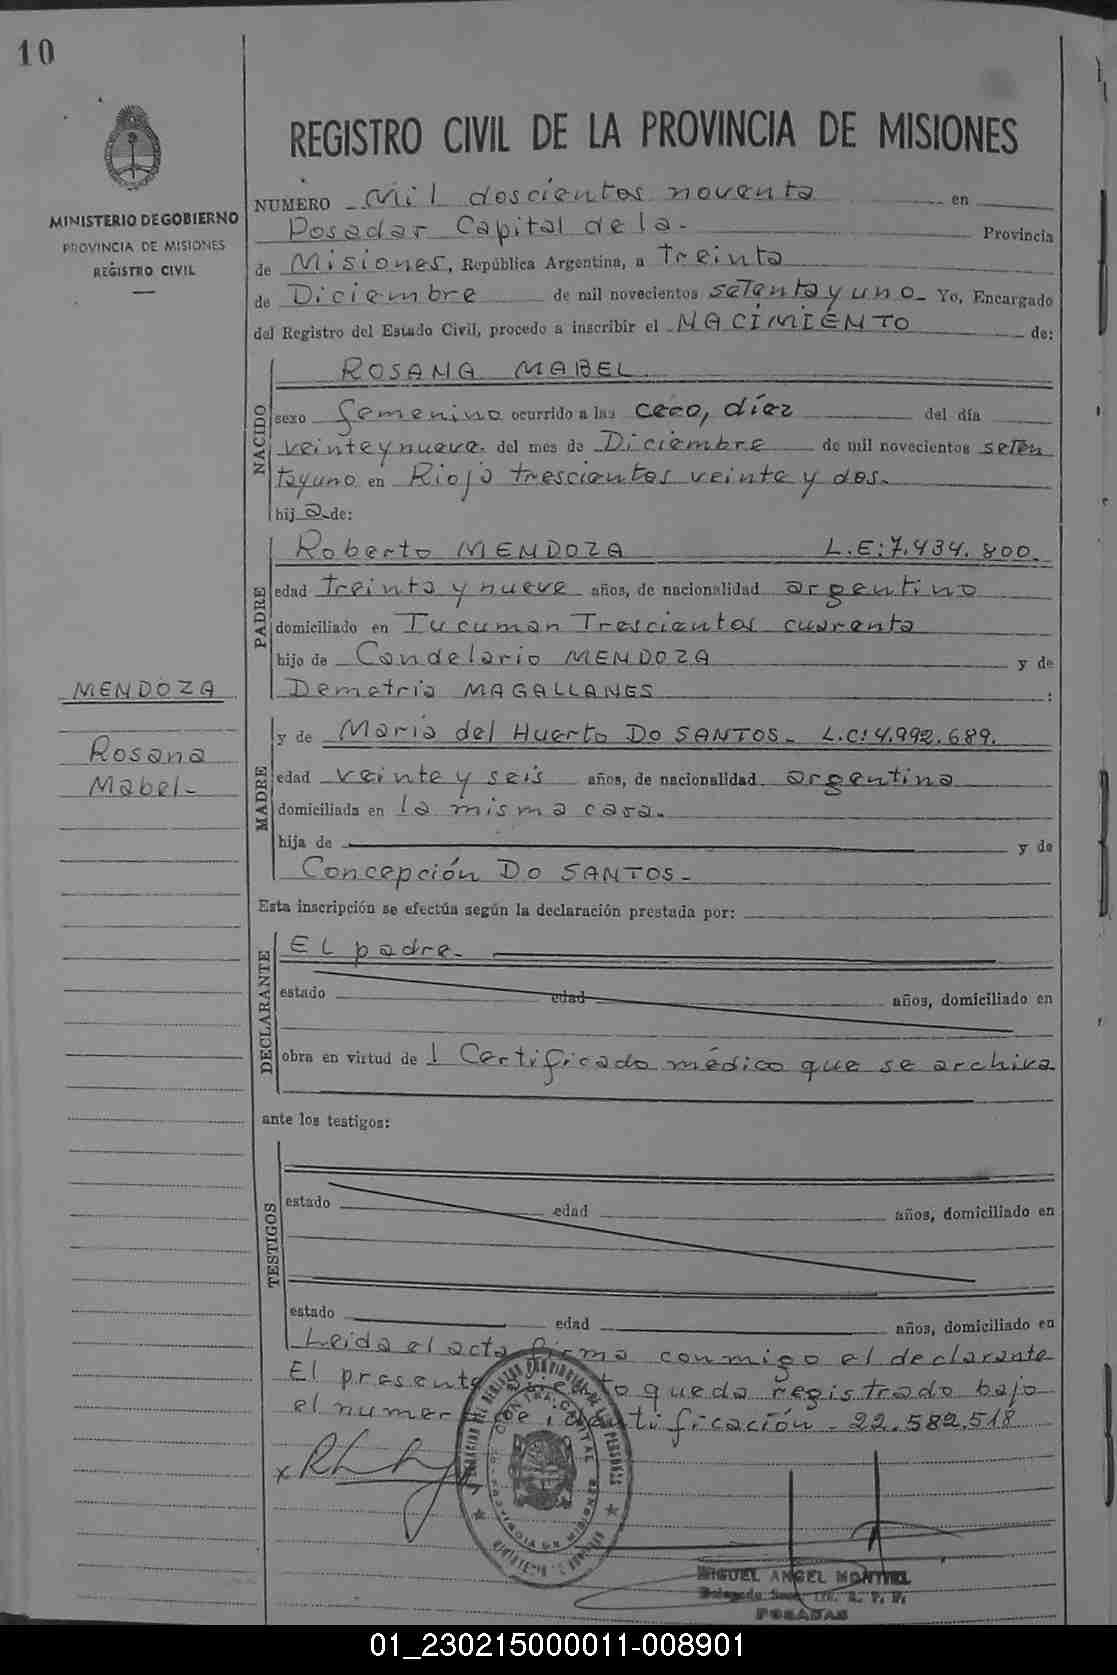 10
MINISTERIO DE GOBIERNO
PROVINCIA DE MISIONES
REGISTRO CIVIL
REGISTRO CIVIL DE LA PROVINCIA DE MISIONES
NUMERO Mil doscientos noventa en
Posadas Capital de la. Provincia
de Misiones, República Argentina, a Treinta
de Diciembre de mil novecientos setenta y uno. Yo, Encargado
del Registro del Estado Civil, procedo a inscribir el NACIMIENTO de:
ROSANA MABEL
NACIDO
sexo femenino ocurrido a las cero, díez del día
veinte y nueve. del mes de Diciembre de mil novecientos seten
tayuno en Rioja trescientos veinte y dos.
hij a de:
PADRE
Roberto MENDOZA L.E:7.434.800.
edad treinta y nueve años, de nacionalidad argentino
domiciliado en Tucuman Trescientos cuarenta
hijo de Candelario MENDOZA y de
Demetria MAGALLANES :
MENDOZA
Rosana
Mabel-
MADRE
y de Maria del Huerto Do SANTOS- L.C:4.992.689.
edad veinte y seis años, de nacionalidad argentina
domiciliada en la misma casa.
hija de y de
Concepción Do SANTOS-
Esta inscripción se efectúa según la declaración prestada por:
DECLARANTE
El padre-
estado edad años, domiciliado en
obra en virtud de 1 Certificado médico que se archiva
ante los testigos:
TESTIGOS
estado edad años, domiciliado en
estado edad años, domiciliado en
Leida el acta firma conmigo el declarante
El presente queda registrado bajo
el numero de identificación- 22.582.518
MIGUEL ANGEL MONTIEL
POSADAS
01_230215000011-008901